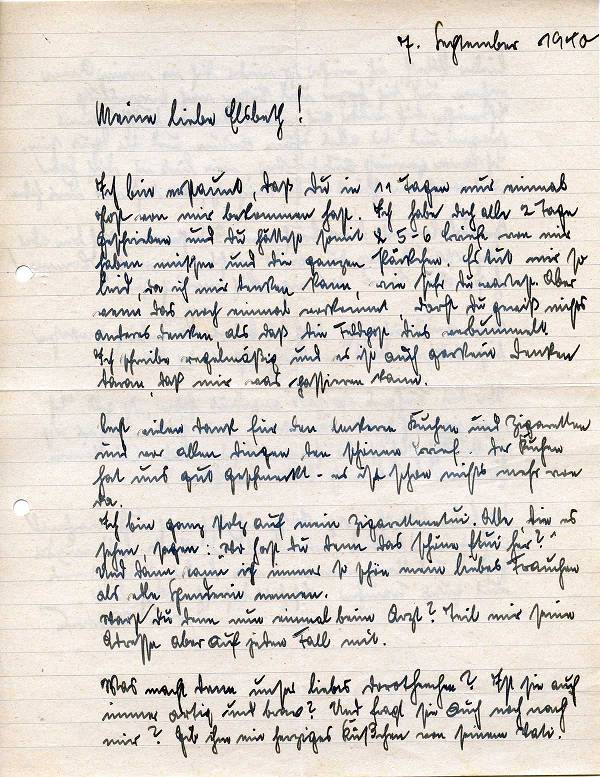 7. September 1940
Meine liebe Elsbeth!
Ich bin erstaunt, daß du in 11 Tagen nur einmal
Post von mir bekommen hast. Ich habe doch alle 2 Tage
geschrieben und du hättest somit 5-6 Briefe von mir
haben müssen und die ganzen Päckchen. Es tut mir so
leid, da ich mir denken kann, wie sehr du wartest. Aber
wenn das noch einmal vorkommt, darfst du gewiß nichts
anderes denken, als daß die Feldpost dies verbummelt.
Ich schreibe regelmäßig und es ist auch garkein Denken
daran, daß mir was passieren kann.
Hast vielen Dank für den leckeren Kuchen und Zigaretten
und vor allen Dingen den schönen Brief. Der Kuchen
hat uns gut geschmeckt - es ist schon nichts mehr von
da.
Ich bin ganz stolz auf mein Zigarettenetui. Alle, die es
sehen, sagen: "Wo hast du denn das schöne Etui her?"
Und dann kann ich immer so schön mein liebes Frauchen
als edle Spenderin nennen.
Warst du denn nun einmal beim Arzt? Teil mir seine
Adresse aber auf jeden Fall mit.
Was macht denn unser liebes Dorothenchen? Ist sie auch
immer artig und brav? Und fragt sie auch noch nach
mir? Gib ihm ein herziges Küßchen von seinem Vati.